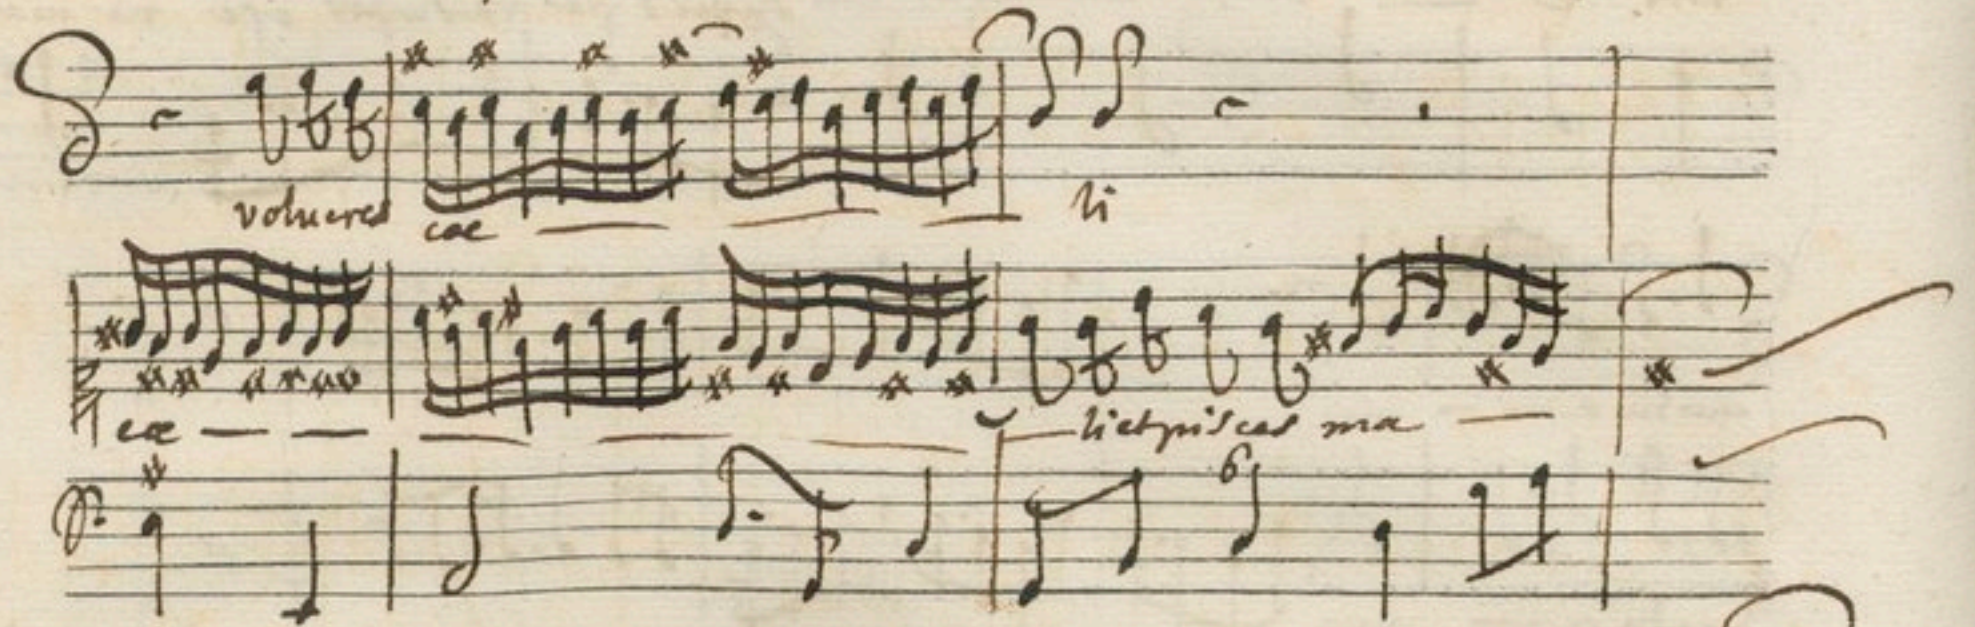 volucres cae li
cae li et pisces ma
6